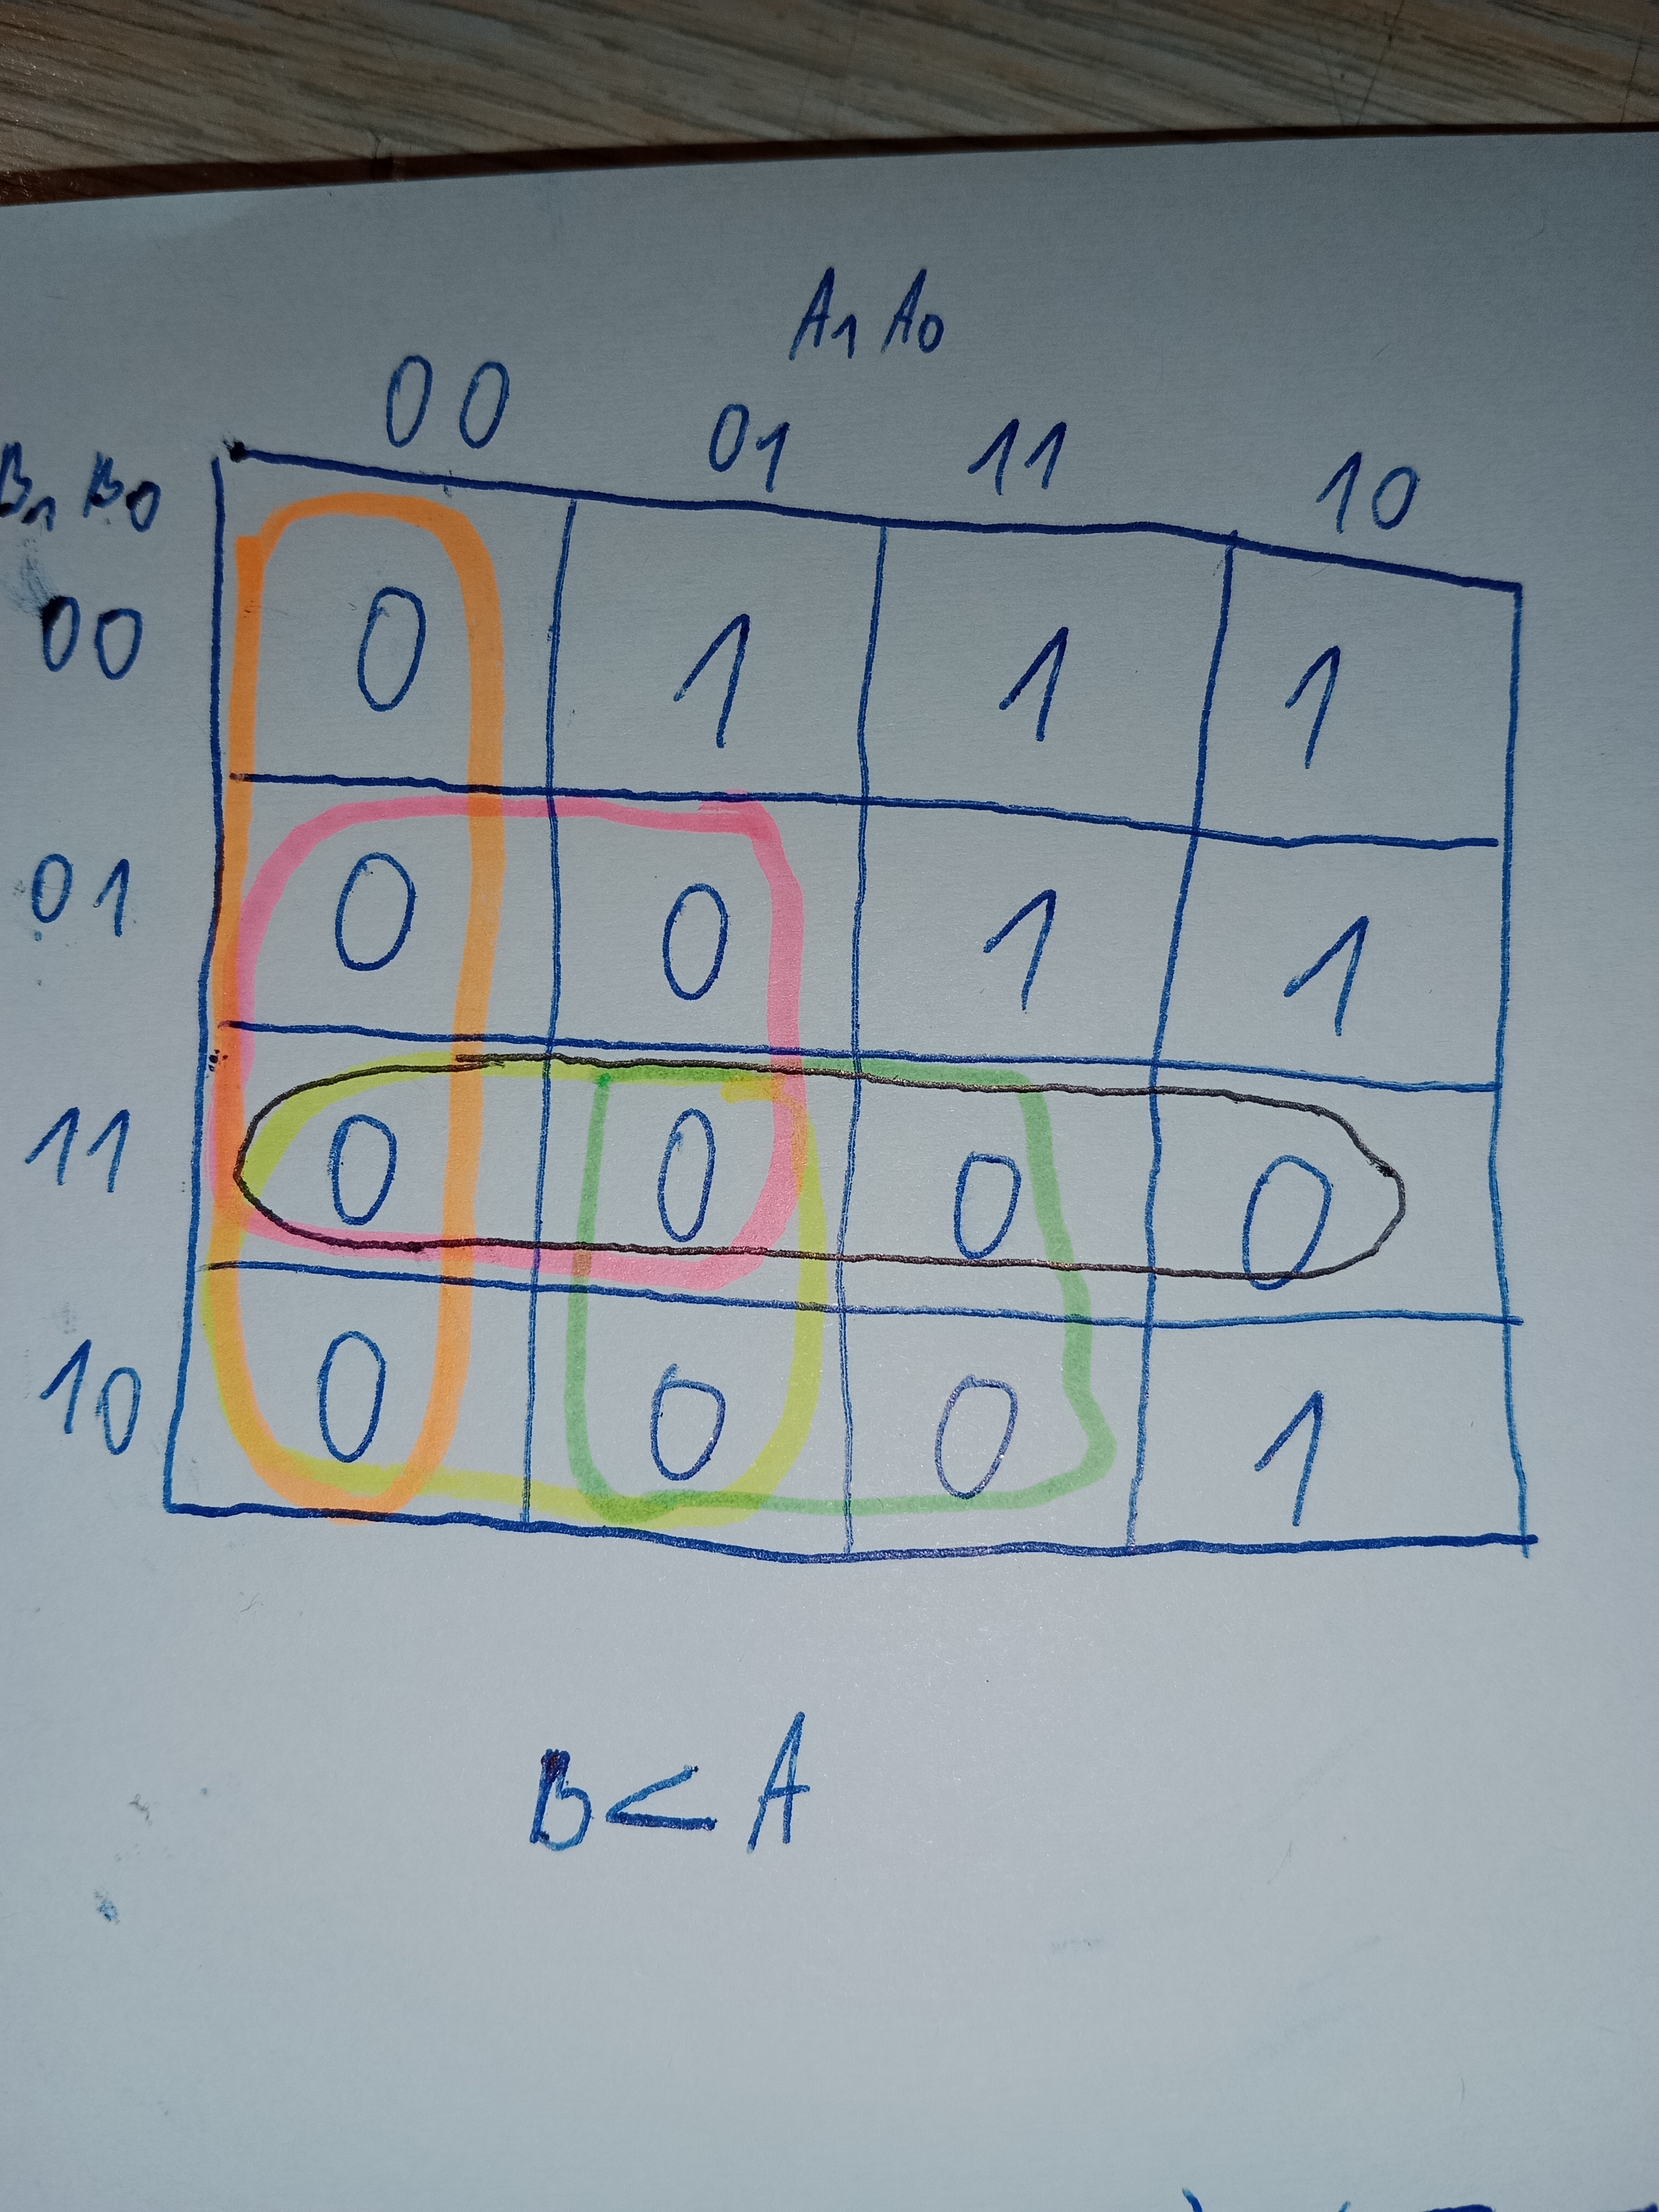 A1 A0
00 01 11 10
B1 B0
00 0 1 1 1
01 0 0 1 1
11 0 0 0 0
10 0 0 0 1
B < A